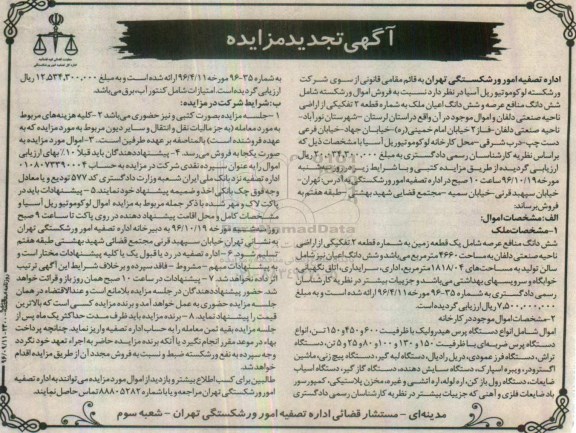 آگهی تجدید مزایده
اداره تصفیه امور ورشکستگی تهران به قائم مقامی قانونی از سوی شرکت
ورشکسته لوکوموتیو ریل آسیا در نظر دارد نسبت به فروش اموال ورشکسته شامل
شش دانگ منافع عرصه و شش دانگ اعیان ملک به شماره قطعه ۲ تفکیکی از اراضی
ناحیه صنعتی دلفان و اموال موجود در آن واقع در استان لرستان - شهرستان نورآباد-
ناحیه صنعتی دلفان-فاز ۲ خیابان امام خمینی(ره)-خیابان جهاد-خیابان فرعی
دست چپ-درب شرقی -محل کارخانه لوکوموتیو ریل آسیا با مشخصات ذیل که
براساس نظریه کارشناسان رسمی دادگستری به مبلغ
ارزیابی گردیده از طریق مزایده کتبی و با شرایط زیر در روز شنبه
مورخه ۹۶/۱۰/۱۹ ساعت ۱۰ صبح در اداره تصفیه امور ورشکستگی به آدرس تهران-
خیابان سپهبد قرنی-خیابان سمیه -مجتمع قضایی شهید بهشتی -طبقه هفتم به
فروش برساند:
الف: مشخصات اموال:
۱-مشخصات ملک
شش دانگ منافع عرصه شامل یک قطعه زمین به شماره قطعه ۲ تفکیکی از اراضی
ناحیه صنعتی دلفان به مساحت ۴۶۶۰ مترمربع می‌باشد و شش دانگ اعیان نیز شامل
سالن تولید به مساحت‌های ۱۸۱۸/۰۴ مترمربع، اداری، سرایداری، اتاق نگهبانی،
خوابگاه و سرویسهای بهداشتی می‌باشد و جزییات بیشتر در نظریه کارشناسان
رسمی دادگستری به شماره ۳۵-۹۶ مورخه ۹۶/۴/۱۱ ارائه شده است و به مبلغ
۷,۵۰۰,۰۰۰,۰۰۰ ریال ارزیابی گردیده است.
۲-مشخصات اموال موجود در کارخانه
اموال شامل انواع دستگاه پرس هیدرولیک با ظرفیت ۶۰۰ و ۴۵۰ و ۱۵۰ تن، انواع
دستگاه پرس ضربه‌ای با ظرفیت ۱۵۰ و ۱۳۰ و ۱۰۰ و ۸۰ و ۲۵ و ۵ تن، دستگاه
تراش، دستگاه فرز عمودی، دریل رادیال، دستگاه لبه گیر، دستگاه پیچ زنی، ماشین
اگزودور، ویبره اسپارک، دستگاه سایش دهنده، دستگاه گاز گیر، دستگاه آسیاب
ضایعات، دستگاه رول باز کن، اره لوله، اره آتشی و غیره، مخزن پلاستیکی، کمپرسور
باد ضایعات فلزی و آهنی که جزییات بیشتر در نظریه کارشناسان رسمی دادگستری
به شماره ۳۵-۹۶ مورخه ۹۶/۴/۱۱ ارائه شده است و به مبلغ ۱۲,۵۳۴,۳۰۰,۰۰۰ ریال
ارزیابی گردیده است. امتیازات شامل کنتور آب، برق می‌باشد.
ب: شرایط شرکت در مزایده:
۱-جلسه مزایده بصورت کتبی و نیز حضوری می‌باشد ۲-کلیه هزینه‌های مربوط
به مورد معامله (به جز مالیات نقل و انتقال و سایر دیون مربوط به مورد مزایده که به
عهده فروشنده است) بالمناصفه بر عهده طرفین است. ۳-اموال مورد مزایده به
صورت یکجا به فروش می‌رسد ۴-پیشنهاددهندگان باید قبلا ۱۰٪ بهای ارزیابی
اموال را به عنوان سپرده نقدی شرکت در مزایده به حساب
اداره تصفیه نزد بانک ملی ایران شعبه وزارت دادگستری کد ۵۷۷ تودیع و یا معادل
وجه فوق چک بانکی اخذ و ضمیمه پیشنهاد خود نمایند. ۵-پیشنهادات باید در
پاکت لاک و مهر شده با ذکر جمله مربوط به مزایده اموال لوکوموتیو ریل آسیا و
مشخصات کامل و محل اقامت پیشنهاد دهنده در روی پاکت تا ساعت ۹ صبح
مورخه ۹۶/۱۰/۱۹ به دبیرخانه اداره تصفیه امور ورشکستگی تهران
به نشانی تهران خیابان سپهبد قرنی مجتمع قضائی شهید بهشتی طبقه هفتم
تسلیم شود ۶-اداره تصفیه در رد یا قبول یک یا کلیه پیشنهادات مختار است و
به پیشنهادات مبهم - مشروط - فاقد سپرده و بر خلاف شرایط این آگهی ترتیب
اثر داده نخواهد شد. ۷-پیشنهادات در ساعت ۱۰ صبح همان روز باز و قرائت خواهد
شد. حضور پیشنهاد دهندگان در جلسه مزایده بلامانع است و عندالاقتضاء در همان
جلسه مزایده حضوری به عمل خواهد آمد و برنده مزایده کسی است که بالاترین
قیمت را پیشنهاد نماید. ۸-برنده مزایده باید ظرف مدت حداکثر یک ماه پس از
جلسه مزایده بقیه ثمن معامله را به حساب اداره تصفیه واریز نماید. چنانچه پرداخت
بهاء در موعد مقرر انجام نگیرد یا آنکه برنده مزایده حاضر به اجراء تعهد خود نگردد
وجه سپرده به نفع ورشکسته ضبط و نسبت به فروش مجدد آن از طریق مزایده اقدام
خواهد شد.
طالبین برای کسب اطلاع بیشتر و بازدید از اموال مورد مزایده می‌توانند به اداره تصفیه
امور ورشکستگی تهران مراجعه و یا با شماره ۸۸۸۰۵۲۸۲ تماس حاصل نمایند.
مدینه‌ای - مستشار قضائی اداره تصفیه امور ورشکستگی تهران - شعبه سوم